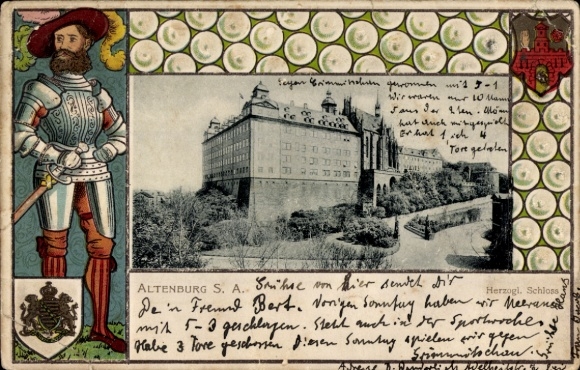 Gegen Crimmitschau gewonnen mit 5-1
Wir waren nur 10 Mann
hat auch mitgespielt
Er hat 1 ich 4
Tore getreten
ALTENBURG S. A.
Herzogl. Schloss
Grüsse von hier sendet Dir
Dein Freund Bert. Vorigen Sonntag haben wir Meerane
mit 5-3 geschlagen. Steht auch in der Sportwoche
Habe 3 Tore geschossen Diesen Sonntag spielen wir gegen
Crimmitschau.